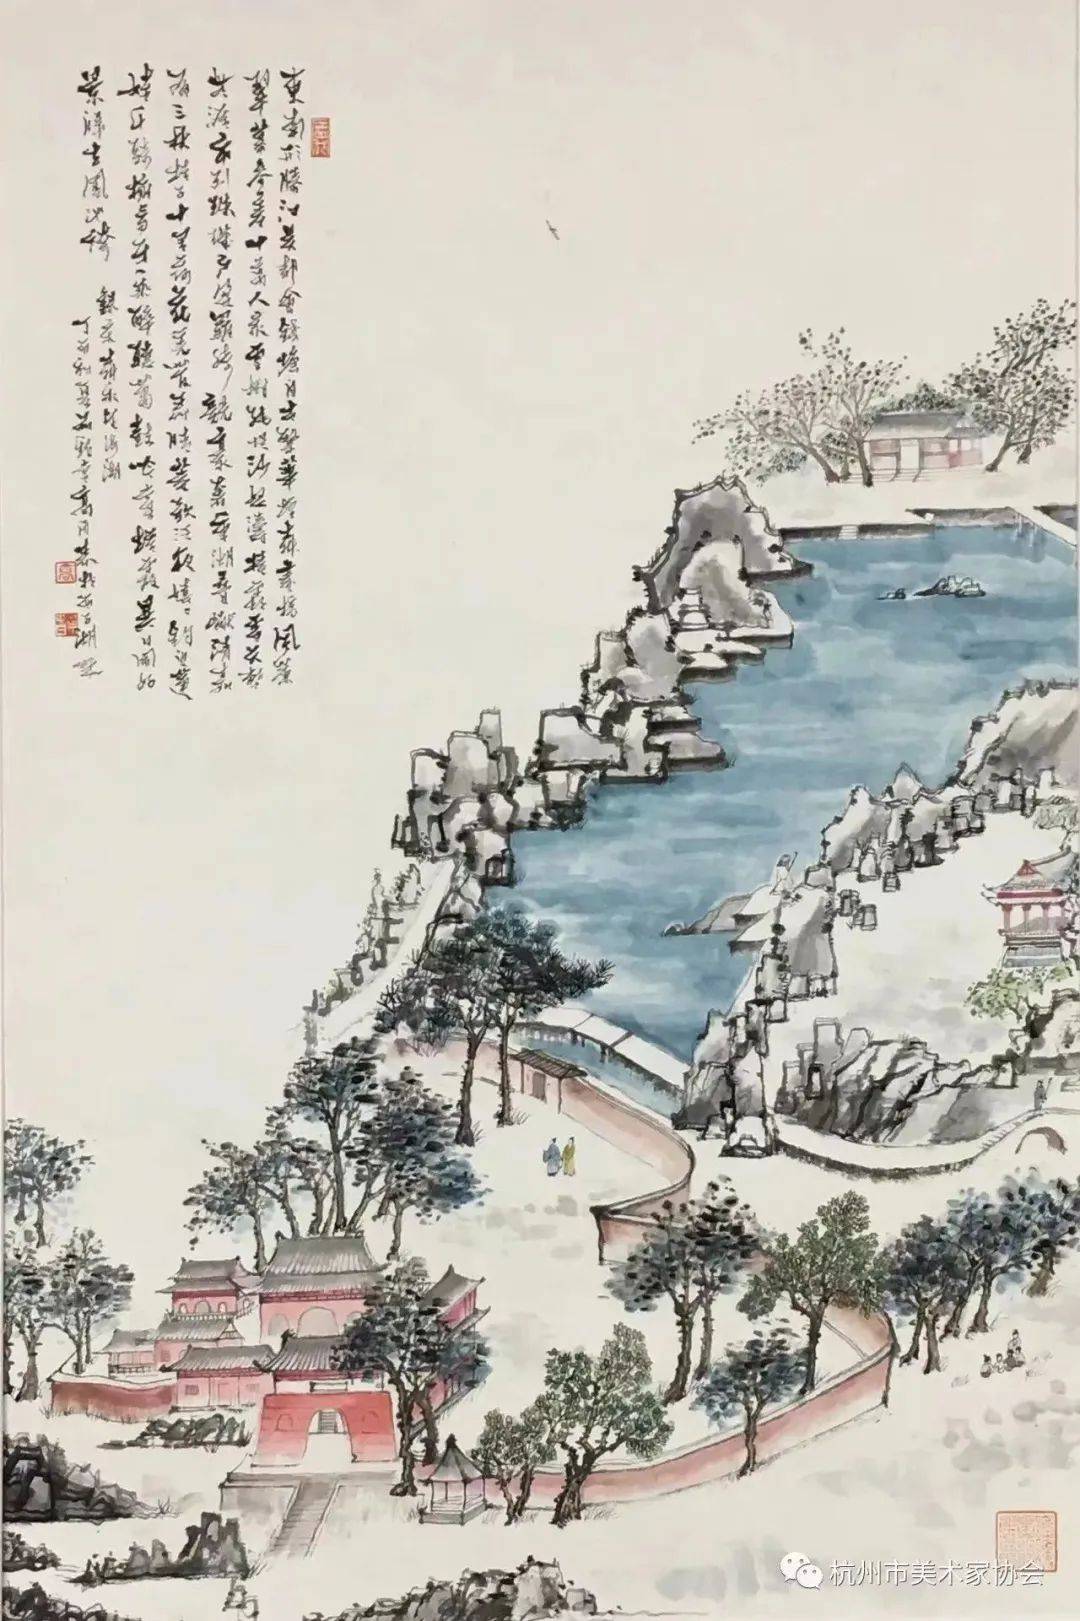 東南形勝江吳都會錢塘自古繁華煙柳畫橋風簾
翠幕參差十萬人家雲樹繞堤沙怒濤捲霜雪天塹
無涯市列珠璣戶盈羅綺競豪奢重湖疊巘清嘉
有三秋桂子十里荷花羌管弄晴菱歌泛夜嬉嬉釣叟蓮
娃千騎擁高牙乘醉聽簫鼓吟賞煙霞異日圖
景歸去鳳池誇
錄宋柳永望海潮
丁酉秋
杭州市美术家协会